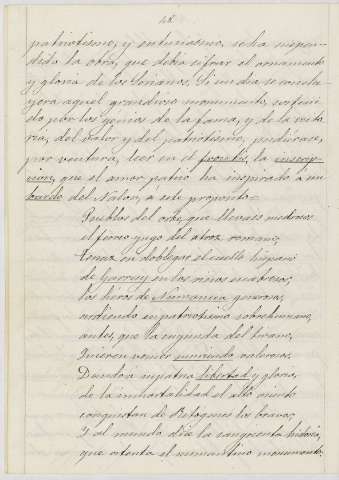 48
patriotismo, y entusiasmo, se ha suspen-
dido la obra, que debía cifrar el ornamento
y gloria de los Sorianos. Si un dia se conclu-
yera aquel grandioso monumento, sosteni-
do por los genios de la fama, y de la victo-
ria, del valor y del patriotismo, pudiérase,
por ventura, leer en el frontis, la inscrip-
cion, que el amor patrio ha inspirado á un
bardo del Nalon, á este proposito—
Pueblos del orbe, que llevais medrosos
el férreo yugo del atroz romano,
en doblegar el cuello hispano
de en los riscos
los hijos de Numancia
ardiendo en patriotismo sobrehumano,
antes, que la coyunda del tirano,
Quieren vencer muriendo valerosos.
Dando a su patria libertad y gloria,
de la inmortalidad el alto asiento
conquistan de Retogenes los bravos;
Y al mundo dice la sangrienta historia,
que ostenta el numantino monumento.